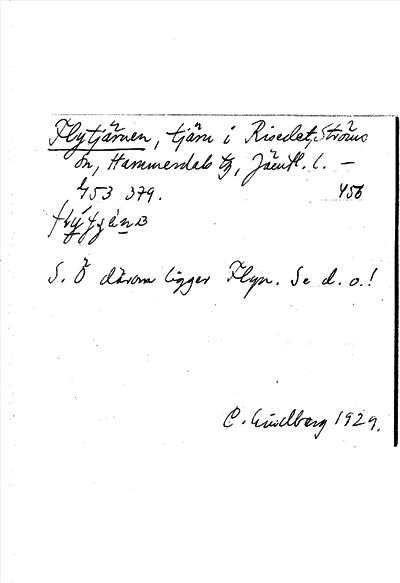 Flytjärnen, tjärn i Risedet, Ströms
sn, Hammerdals tg, Jämtl. l. —
453 379. 456
S. Ö därom ligger Flyn. Se d. o.!
C. Lindberg 1929.